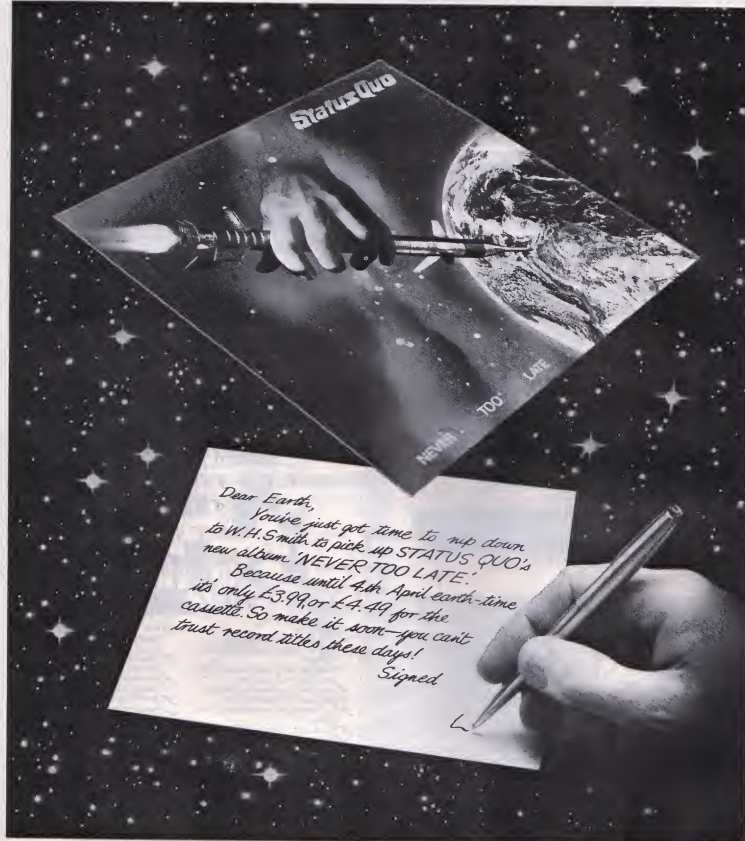 Status Quo
NEVER TOO LATE
Dear Earth,
You've just got time to nip down
to W.H.Smith to pick up STATUS QUO's
new album 'NEVER TOO LATE'.
Because until 4th April earth-time
it's only £3.99, or £4.49 for the
cassette. So make it soon—you can't
trust record titles these days!
Signed